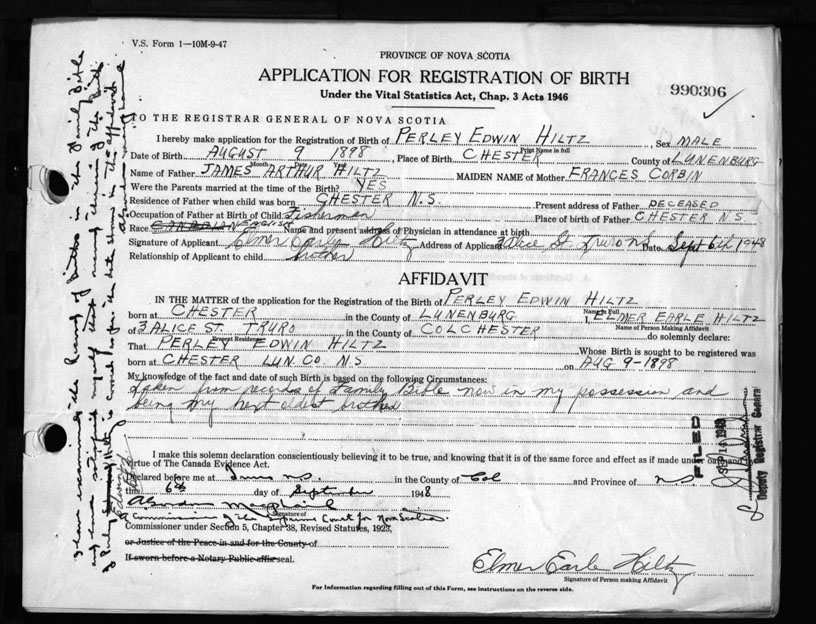 V.S. Form 1—10M-9-47
PROVINCE OF NOVA SCOTIA
APPLICATION FOR REGISTRATION OF BIRTH
990306
Under the Vital Statistics Act, Chap. 3 Acts 1946
TO THE REGISTRAR GENERAL OF NOVA SCOTIA
I hereby make application for the Registration of Birth of PERLEY EDWIN HILTZ, Sex MALE
Print Name in full
Date of Birth AUGUST 9 1898, Place of Birth CHESTER County of LUNENBURG
Month Date Year
Name of Father JAMES ARTHUR HILTZ MAIDEN NAME of Mother FRANCES CORBIN
Were the Parents married at the time of the Birth? YES
Residence of Father when child was born CHESTER N.S. Present address of Father DECEASED
Occupation of Father at Birth of Child Fisherman Place of birth of Father CHESTER N.S.
Race CANADIAN ENGLISH Name and present address of Physician in attendance at birth
Signature of Applicant Elmer Earle Hiltz Address of Applicant 3 Alice St. Truro NS Date Sept 6th 1948
Relationship of Applicant to child brother
AFFIDAVIT
IN THE MATTER of the application for the Registration of the Birth of PERLEY EDWIN HILTZ
Name in Full
born at CHESTER in the County of LUNENBURG I, ELMER EARLE HILTZ
Name of Person Making Affidavit
of 3 ALICE ST. TRURO in the County of COLCHESTER do solemnly declare:
Present Residence
That PERLEY EDWIN HILTZ Whose Birth is sought to be registered was
born at CHESTER LUN. CO. N.S on AUG 9-1898
My knowledge of the fact and date of such Birth is based on the following Circumstances:
Taken from records of Family Bible now in my possession and
being my next eldest brother
I make this solemn declaration conscientiously believing it to be true, and knowing that it is of the same force and effect as if made under oath and by
virtue of The Canada Evidence Act.
Declared before me at Truro NS. in the County of Col and Province of NS.
this 6th day of September 1948
Signature of
A Commissioner of the Supreme Court for Nova Scotia
Commissioner under Section 5, Chapter 38, Revised Statutes, 1923,
or Justice of the Peace in and for the County of
If sworn before a Notary Public affix seal.
Elmer Earle Hiltz
Signature of Person making Affidavit
For Information regarding filling out of this Form, see instructions on the reverse side.
I have examined the Record of Births in the family Bible
FILED
SEP 14 1948
Deputy Registrar General